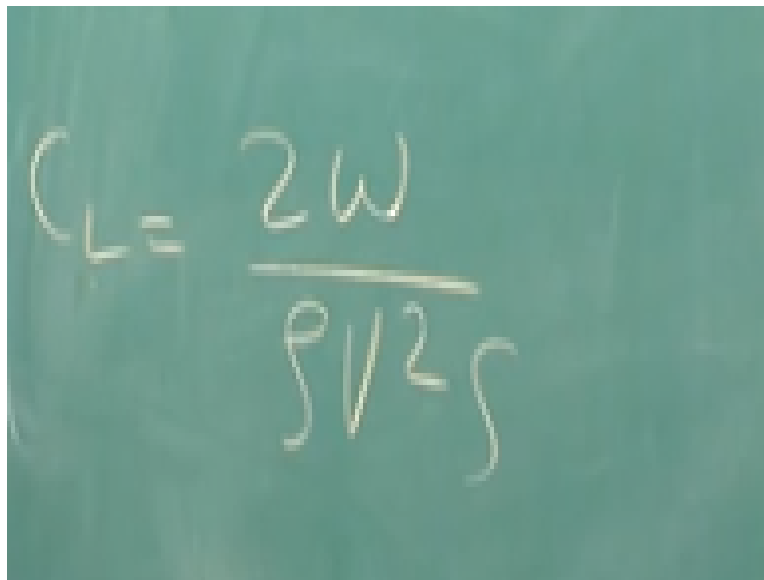 C_L = \frac{2W}{\rho V^2 S}